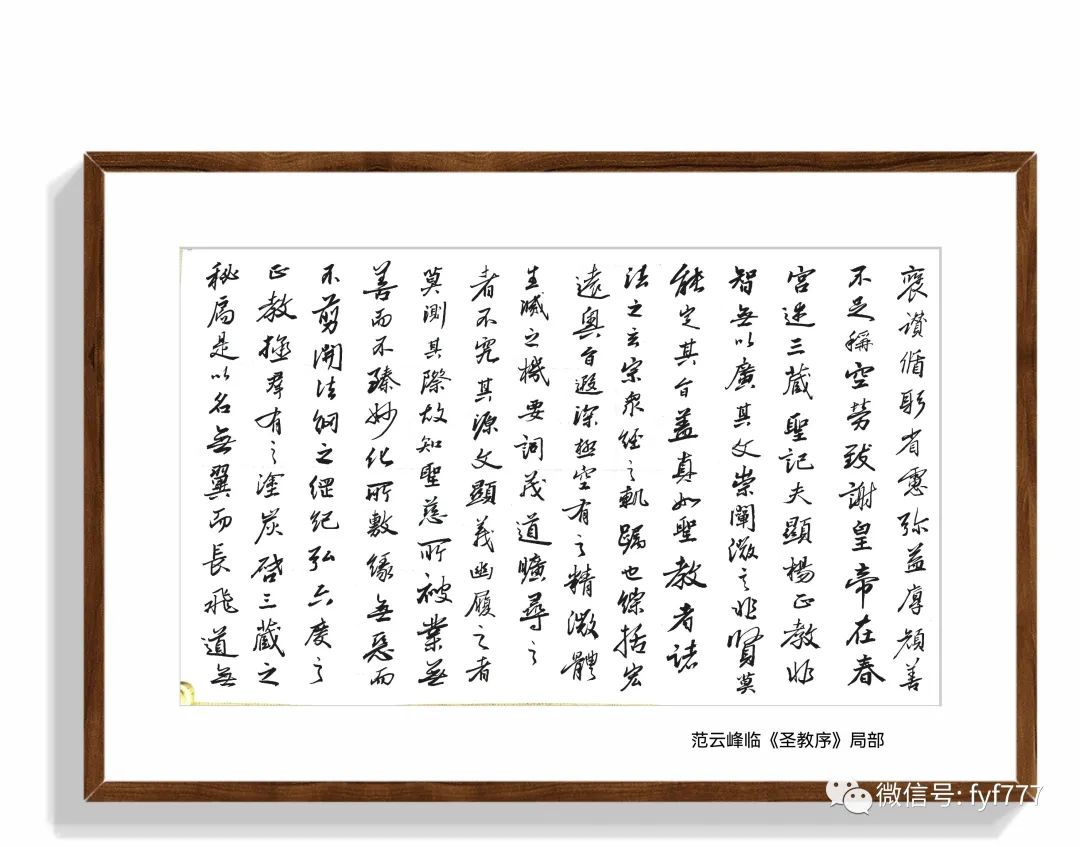 褒讚循躬省慮弥益厚顔善
不足稱空勞致謝皇帝在春
宮述三藏聖記夫顯揚正教非
智無以廣其文崇闡微言非賢莫
能定其旨蓋真如聖教者諸
法之玄宗衆經之軌躅也綜括宏
遠奧旨遐深極空有之精微體
生滅之機要詞茂道曠尋之
者不究其源文顯義幽履之者
莫測其際故知聖慈所被業無
善而不臻妙化所敷緣無惡而
不剪開法網之綱紀弘六度之
正教拯羣有之塗炭啓三藏之
秘扃是以名無翼而長飛道無
范云峰临《圣教序》局部
微信号: fyf777